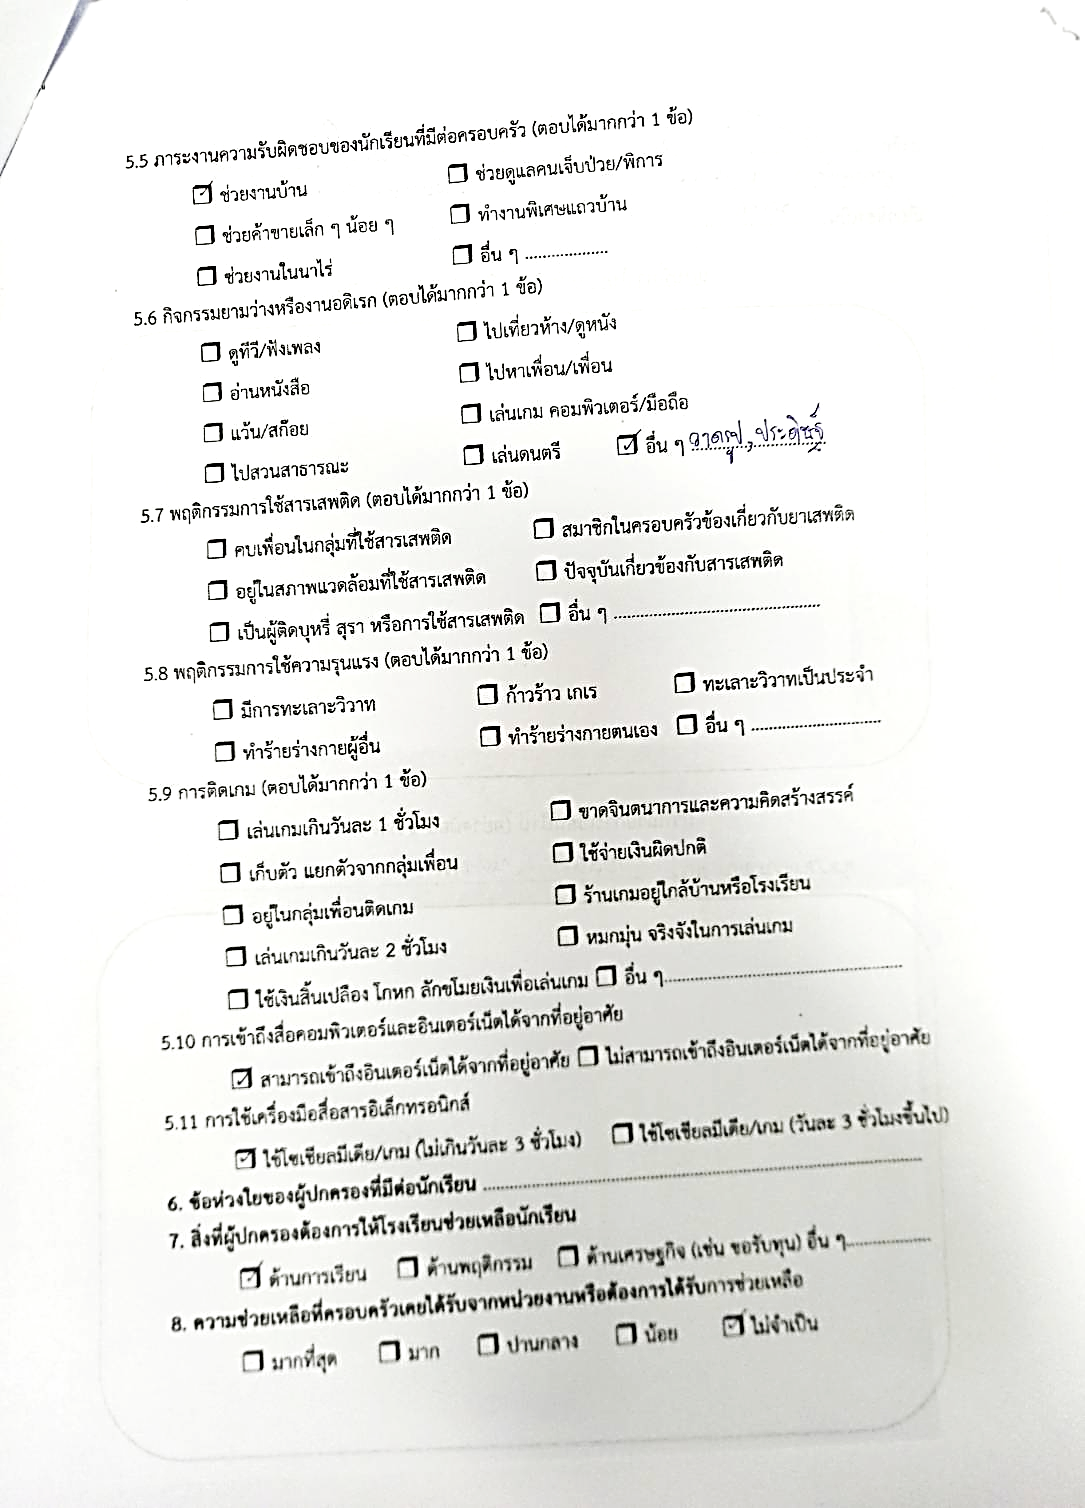 5.5 ภาระงานความรับผิดชอบของนักเรียนที่มีต่อครอบครัว (ตอบได้มากกว่า 1 ข้อ)
☑ ช่วยงานบ้าน ☐ ช่วยดูแลคนเจ็บป่วย/พิการ
☐ ช่วยค้าขายเล็ก ๆ น้อย ๆ ☐ ทำงานพิเศษแถวบ้าน
☐ ช่วยงานในนาไร่ ☐ อื่น ๆ ...................
5.6 กิจกรรมยามว่างหรืองานอดิเรก (ตอบได้มากกว่า 1 ข้อ)
☐ ดูทีวี/ฟังเพลง ☐ ไปเที่ยวห้าง/ดูหนัง
☐ อ่านหนังสือ ☐ ไปหาเพื่อน/เพื่อน
☐ แว้น/สก๊อย ☐ เล่นเกม คอมพิวเตอร์/มือถือ
☐ ไปสวนสาธารณะ ☐ เล่นดนตรี ☑ อื่น ๆ วาดรูป, ประดิษฐ์
5.7 พฤติกรรมการใช้สารเสพติด (ตอบได้มากกว่า 1 ข้อ)
☐ คบเพื่อนในกลุ่มที่ใช้สารเสพติด ☐ สมาชิกในครอบครัวข้องเกี่ยวกับยาเสพติด
☐ อยู่ในสภาพแวดล้อมที่ใช้สารเสพติด ☐ ปัจจุบันเกี่ยวข้องกับสารเสพติด
☐ เป็นผู้ติดบุหรี่ สุรา หรือการใช้สารเสพติด ☐ อื่น ๆ ..............................................
5.8 พฤติกรรมการใช้ความรุนแรง (ตอบได้มากกว่า 1 ข้อ)
☐ มีการทะเลาะวิวาท ☐ ก้าวร้าว เกเร ☐ ทะเลาะวิวาทเป็นประจำ
☐ ทำร้ายร่างกายผู้อื่น ☐ ทำร้ายร่างกายตนเอง ☐ อื่น ๆ .............................
5.9 การติดเกม (ตอบได้มากกว่า 1 ข้อ)
☐ เล่นเกมเกินวันละ 1 ชั่วโมง ☐ ขาดจินตนาการและความคิดสร้างสรรค์
☐ เก็บตัว แยกตัวจากกลุ่มเพื่อน ☐ ใช้จ่ายเงินผิดปกติ
☐ อยู่ในกลุ่มเพื่อนติดเกม ☐ ร้านเกมอยู่ใกล้บ้านหรือโรงเรียน
☐ เล่นเกมเกินวันละ 2 ชั่วโมง ☐ หมกมุ่น จริงจังในการเล่นเกม
☐ ใช้เงินสิ้นเปลือง โกหก ลักขโมยเงินเพื่อเล่นเกม ☐ อื่น ๆ.....................................................
5.10 การเข้าถึงสื่อคอมพิวเตอร์และอินเตอร์เน็ตได้จากที่อยู่อาศัย
☑ สามารถเข้าถึงอินเตอร์เน็ตได้จากที่อยู่อาศัย ☐ ไม่สามารถเข้าถึงอินเตอร์เน็ตได้จากที่อยู่อาศัย
5.11 การใช้เครื่องมือสื่อสารอิเล็กทรอนิกส์
☑ ใช้โซเชียลมีเดีย/เกม (ไม่เกินวันละ 3 ชั่วโมง) ☐ ใช้โซเชียลมีเดีย/เกม (วันละ 3 ชั่วโมงขึ้นไป)
6. ข้อห่วงใยของผู้ปกครองที่มีต่อนักเรียน ....................................................................................................
7. สิ่งที่ผู้ปกครองต้องการให้โรงเรียนช่วยเหลือนักเรียน
☑ ด้านการเรียน ☐ ด้านพฤติกรรม ☐ ด้านเศรษฐกิจ (เช่น ขอรับทุน) อื่น ๆ...................
8. ความช่วยเหลือที่ครอบครัวเคยได้รับจากหน่วยงานหรือต้องการได้รับการช่วยเหลือ
☐ มากที่สุด ☐ มาก ☐ ปานกลาง ☐ น้อย ☑ ไม่จำเป็น